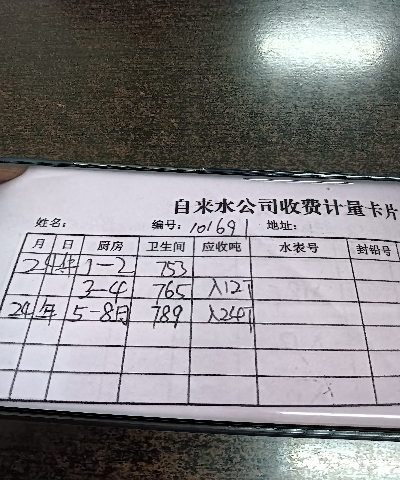 自来水公司收费计量卡片
姓名: 编号: 101691 地址:
月 日 厨房 卫生间 应收吨 水表号 封铅号
24年 1-2 753
3-4 765 入12T
24年 5-8月 789 入24T